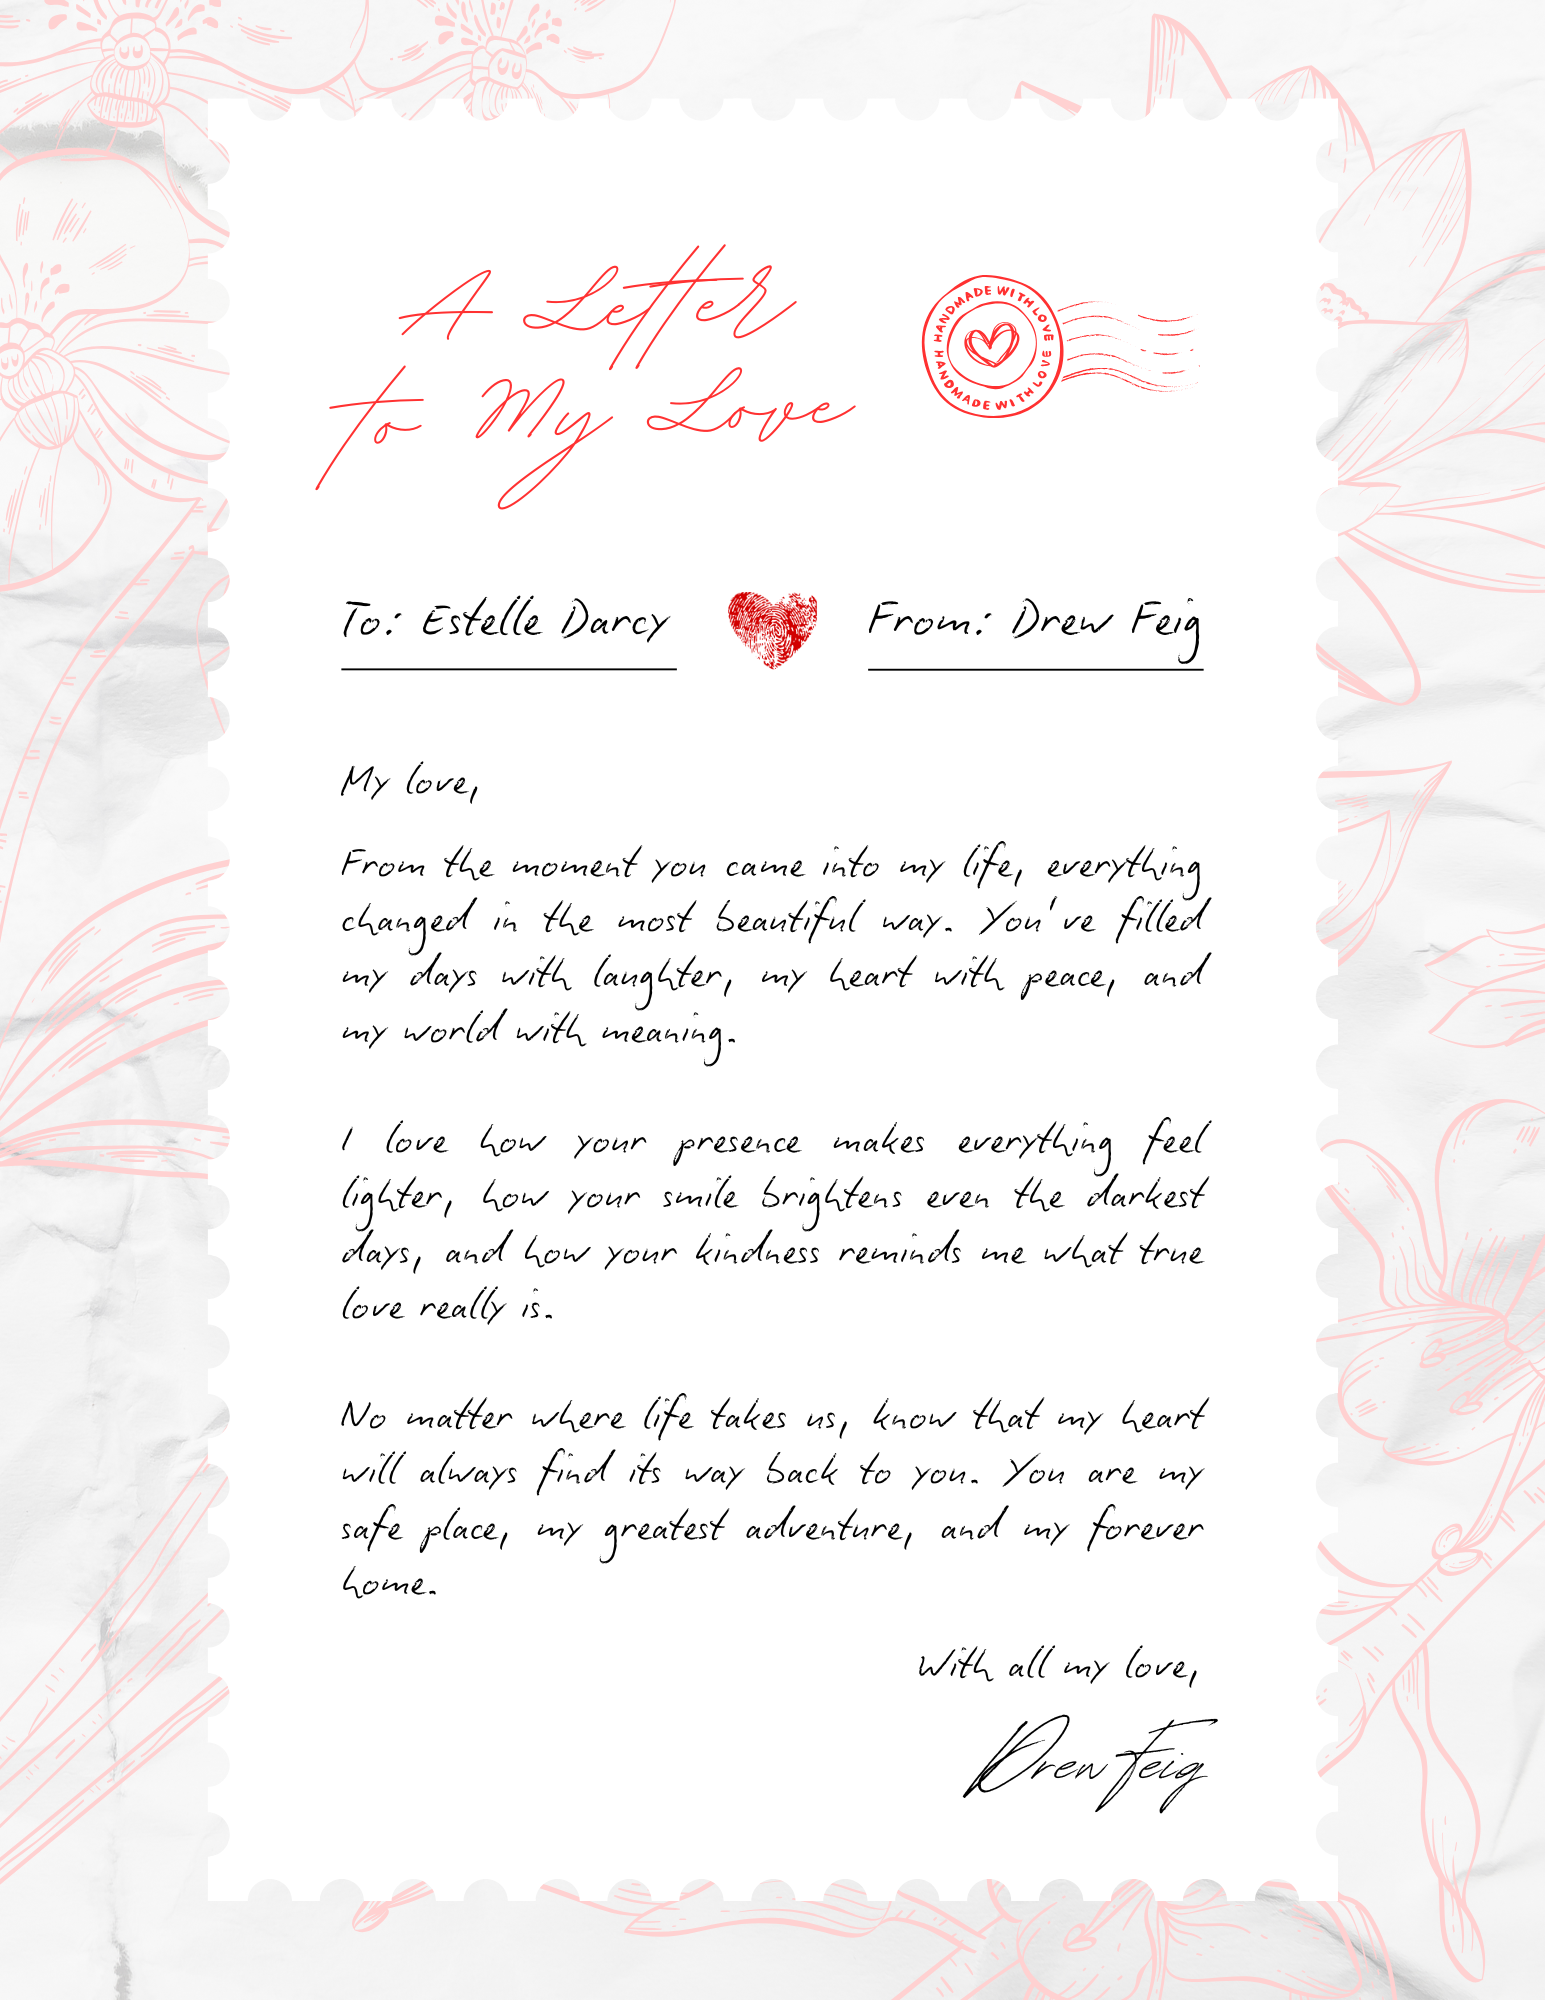 A Letter
to My Love
HANDMADE WITH LOVE
HANDMADE WITH LOVE
To: Estelle Darcy
From: Drew Feig
My love,
From the moment you came into my life, everything
changed in the most beautiful way. You've filled
my days with laughter, my heart with peace, and
my world with meaning.
I love how your presence makes everything feel
lighter, how your smile brightens even the darkest
days, and how your kindness reminds me what true
love really is.
No matter where life takes us, know that my heart
will always find its way back to you. You are my
safe place, my greatest adventure, and my forever
home.
With all my love,
Drew Feig